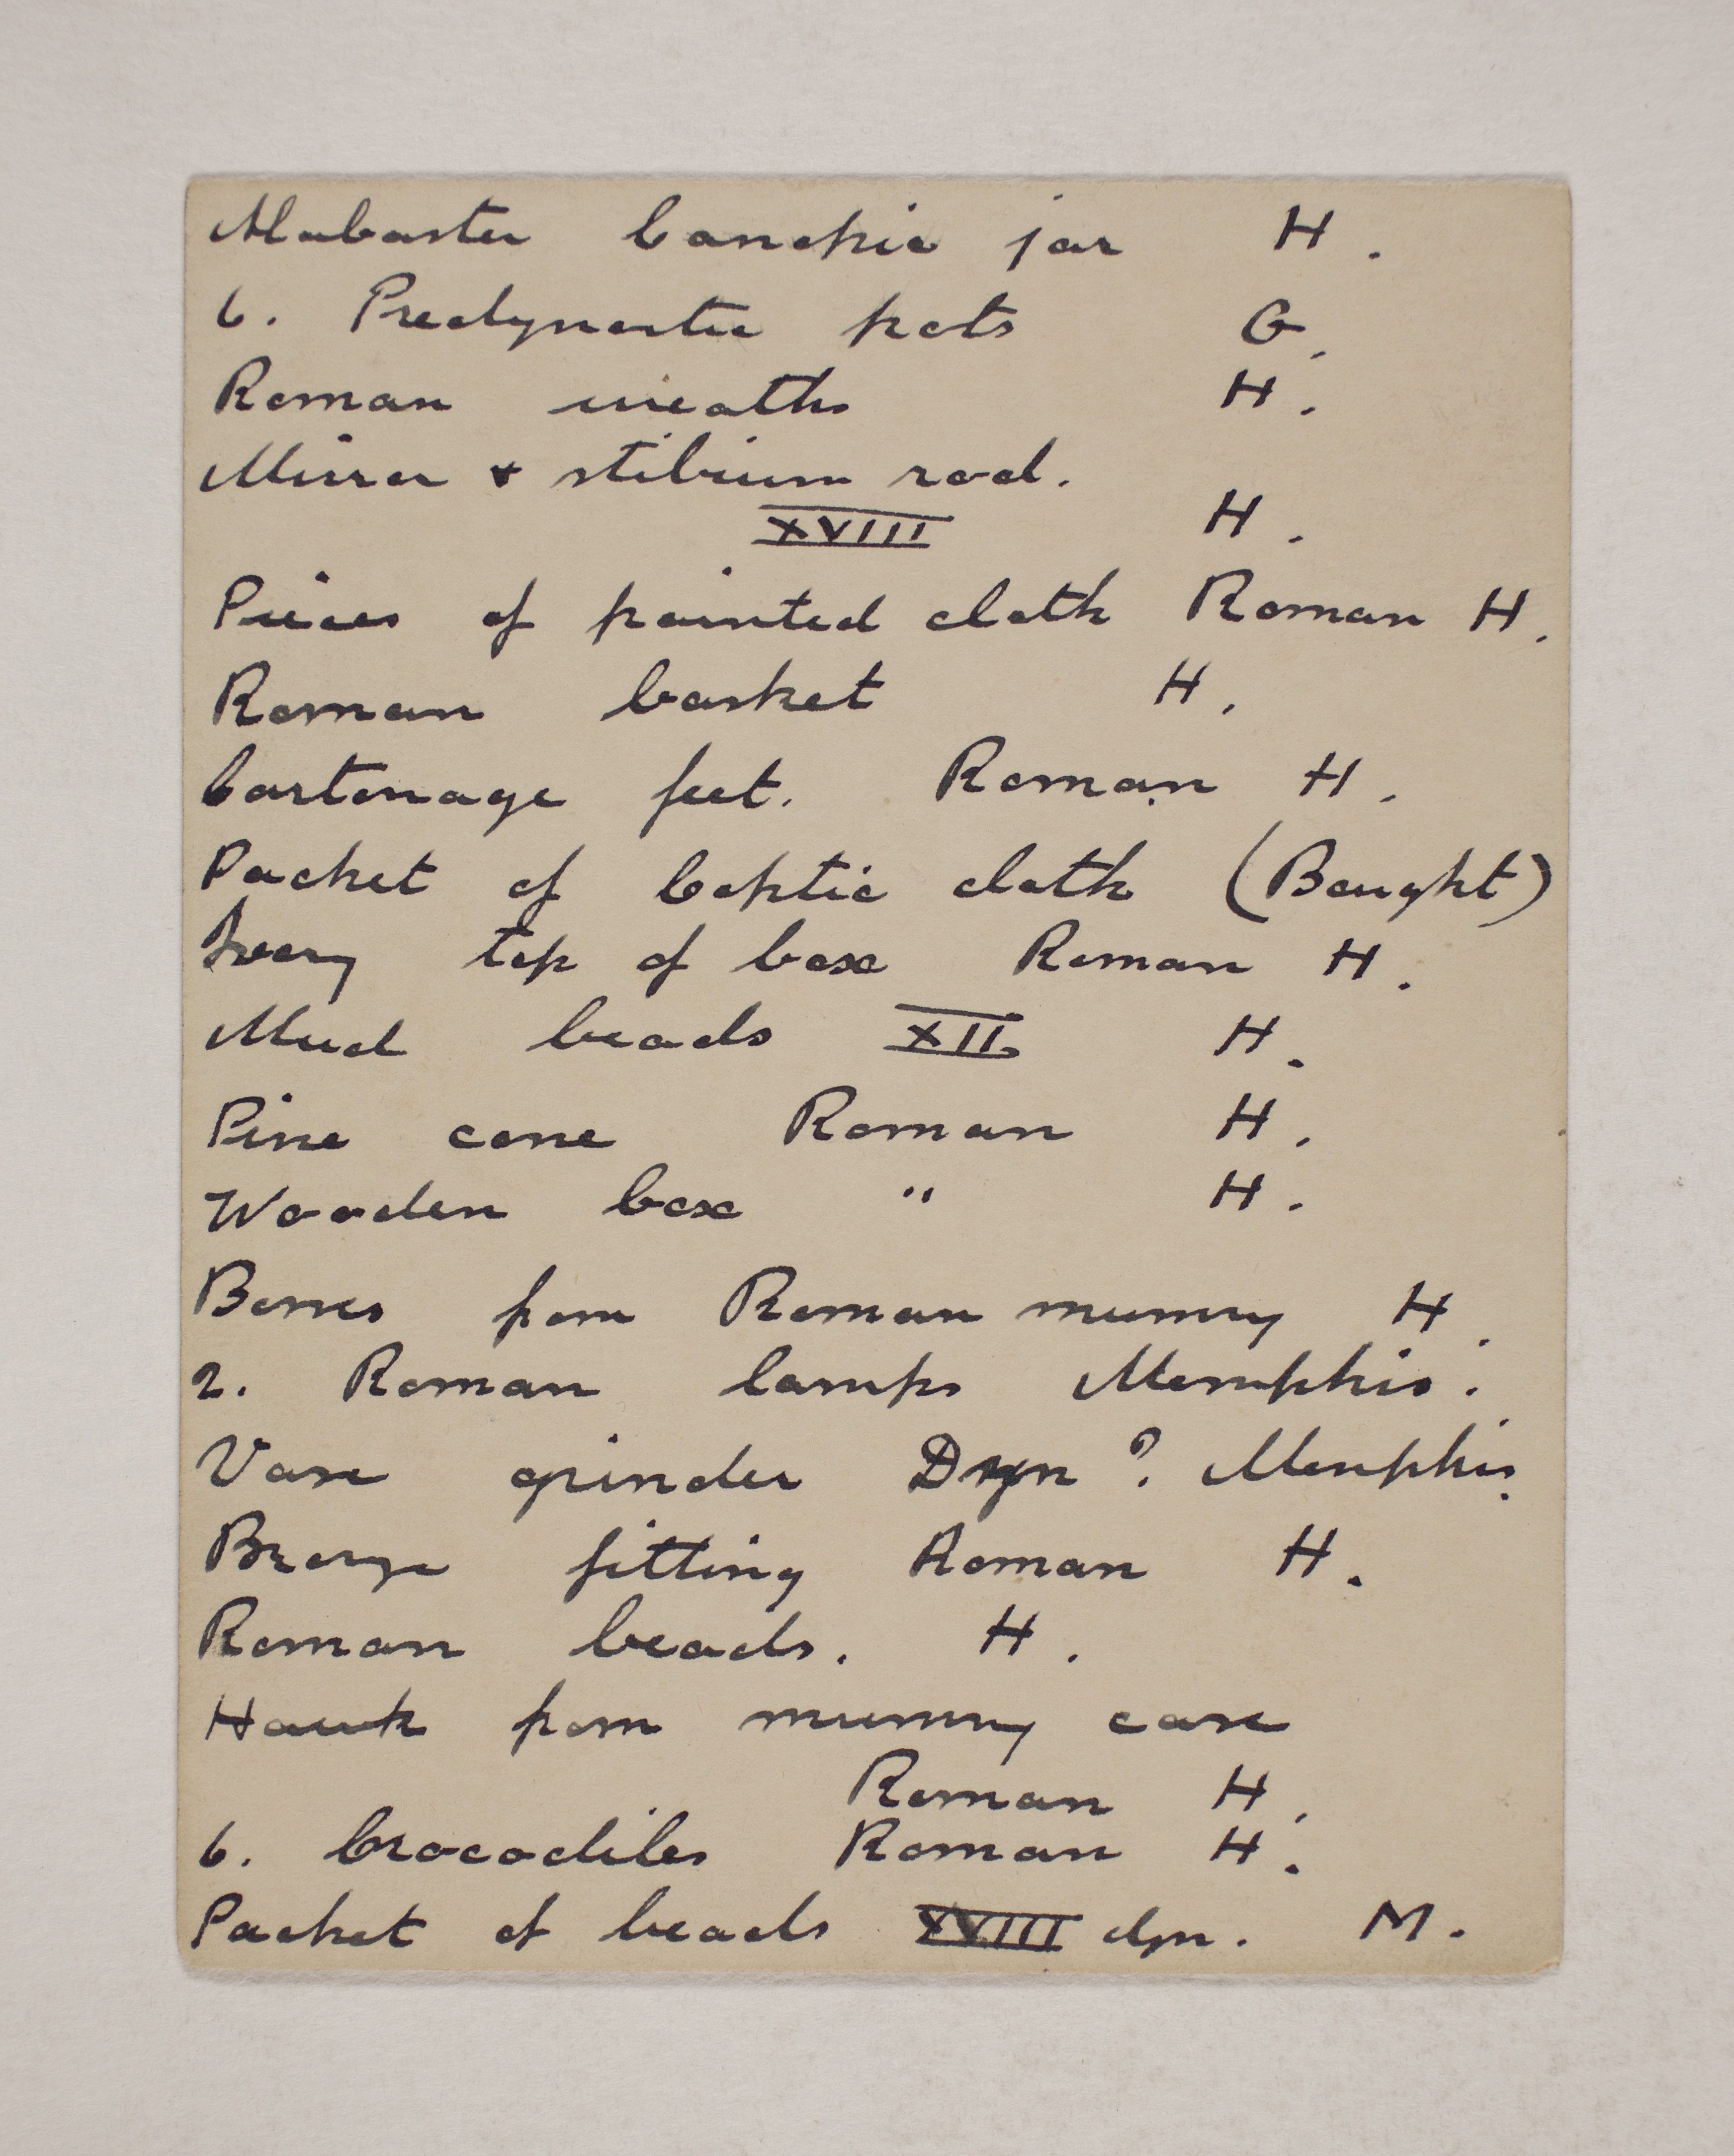 Alabaster Canopic jar H.
6. Predynastic pots G.
Roman wreaths H.
Mirror & stibium rod.
XVIII H.
Pieces of painted cloth Roman H.
Roman basket H.
Cartonage feet. Roman H.
Packet of Coptic cloth (Bought)
Ivory top of box Roman H.
Mud beads XII H.
Pine cone Roman H.
Wooden box " H.
Bones from Roman mummy H.
2. Roman lamps Memphis.
Vase grinder Dyn ? Memphis.
Bronze fitting Roman H.
Roman beads. H.
Hawk from mummy case
Roman H.
6. Crocodiles Roman H.
Packet of beads XVIII dyn. M.